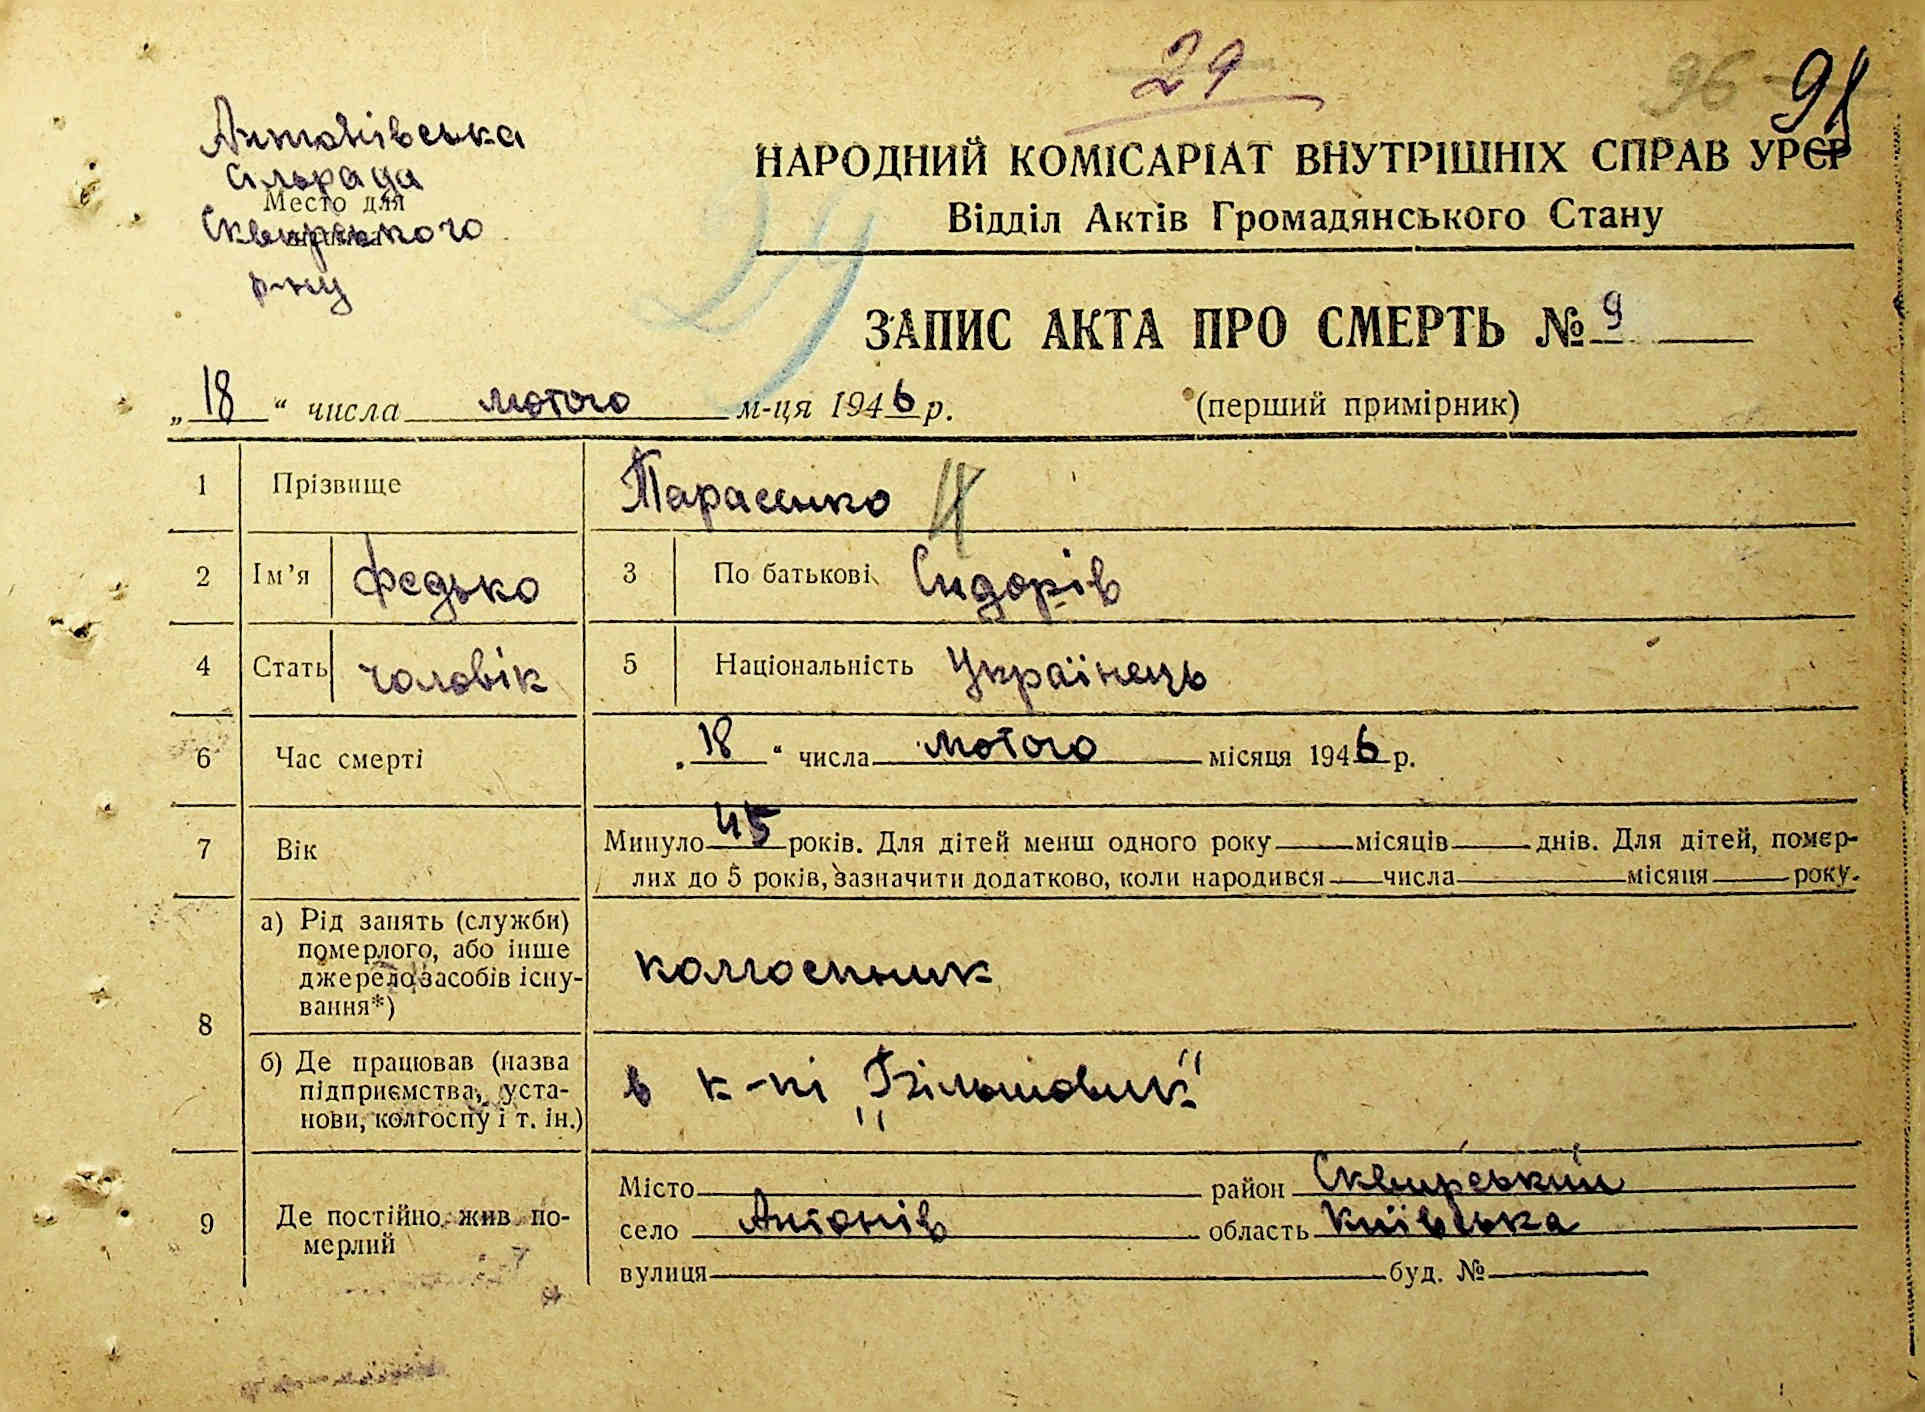 29
96 98
Антонівська
сільрада
Место для
Сквирського
р-ну
НАРОДНИЙ КОМІСАРІАТ ВНУТРІШНІХ СПРАВ УРСР
Відділ Актів Громадянського Стану
29
ЗАПИС АКТА ПРО СМЕРТЬ № 9
„18“ числа лютого м-ця 1946 р. (перший примірник)
1 Прізвище Тарасенко
2 Ім’я Федько 3 По батькові Сидорів
4 Стать чоловік 5 Національність Українець
6 Час смерті „18“ числа лютого місяця 1946 р.
7 Вік Минуло 45 років. Для дітей менш одного року місяців днів. Для дітей, помер-
лих до 5 років, зазначити додатково, коли народився числа місяця року.
8 а) Рід занять (служби)
померлого, або інше
джерело засобів існу-
вання*)
колгоспник
б) Де працював (назва
підприємства, уста-
нови, колгоспу і т. ін.)
в к-пі „Більшовик“
9 Де постійно жив по-
мерлий
Місто район Сквирський
село Антонів область Київська
вулиця буд. №